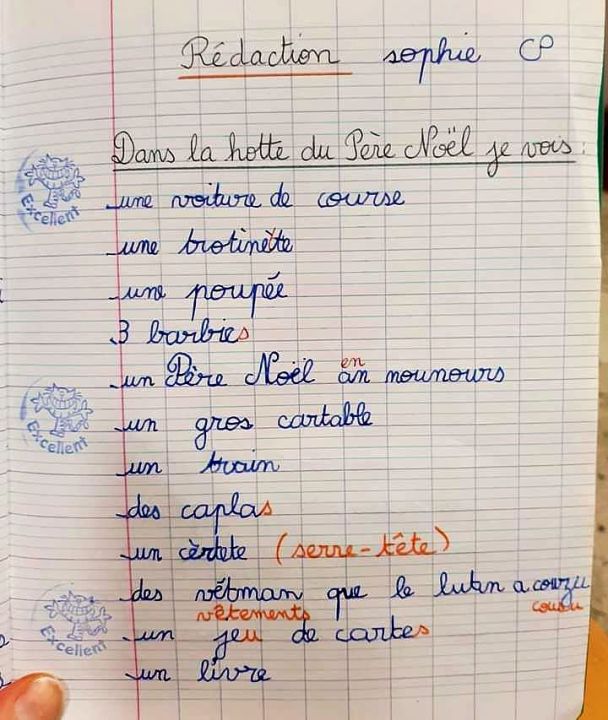 Rédaction sophie CP
Dans la hotte du Père Noël je vois :
une voiture de course
Excellent
une trotinète
une poupée
3 barbies
en
un Père Noël an nounours
un gros cartable
Excellent
un train
des caplas
un cèrdete (serre-tête)
des vètman que le lutin a couzu
vêtements cousu
un jeu de cartes
Excellent
un livre